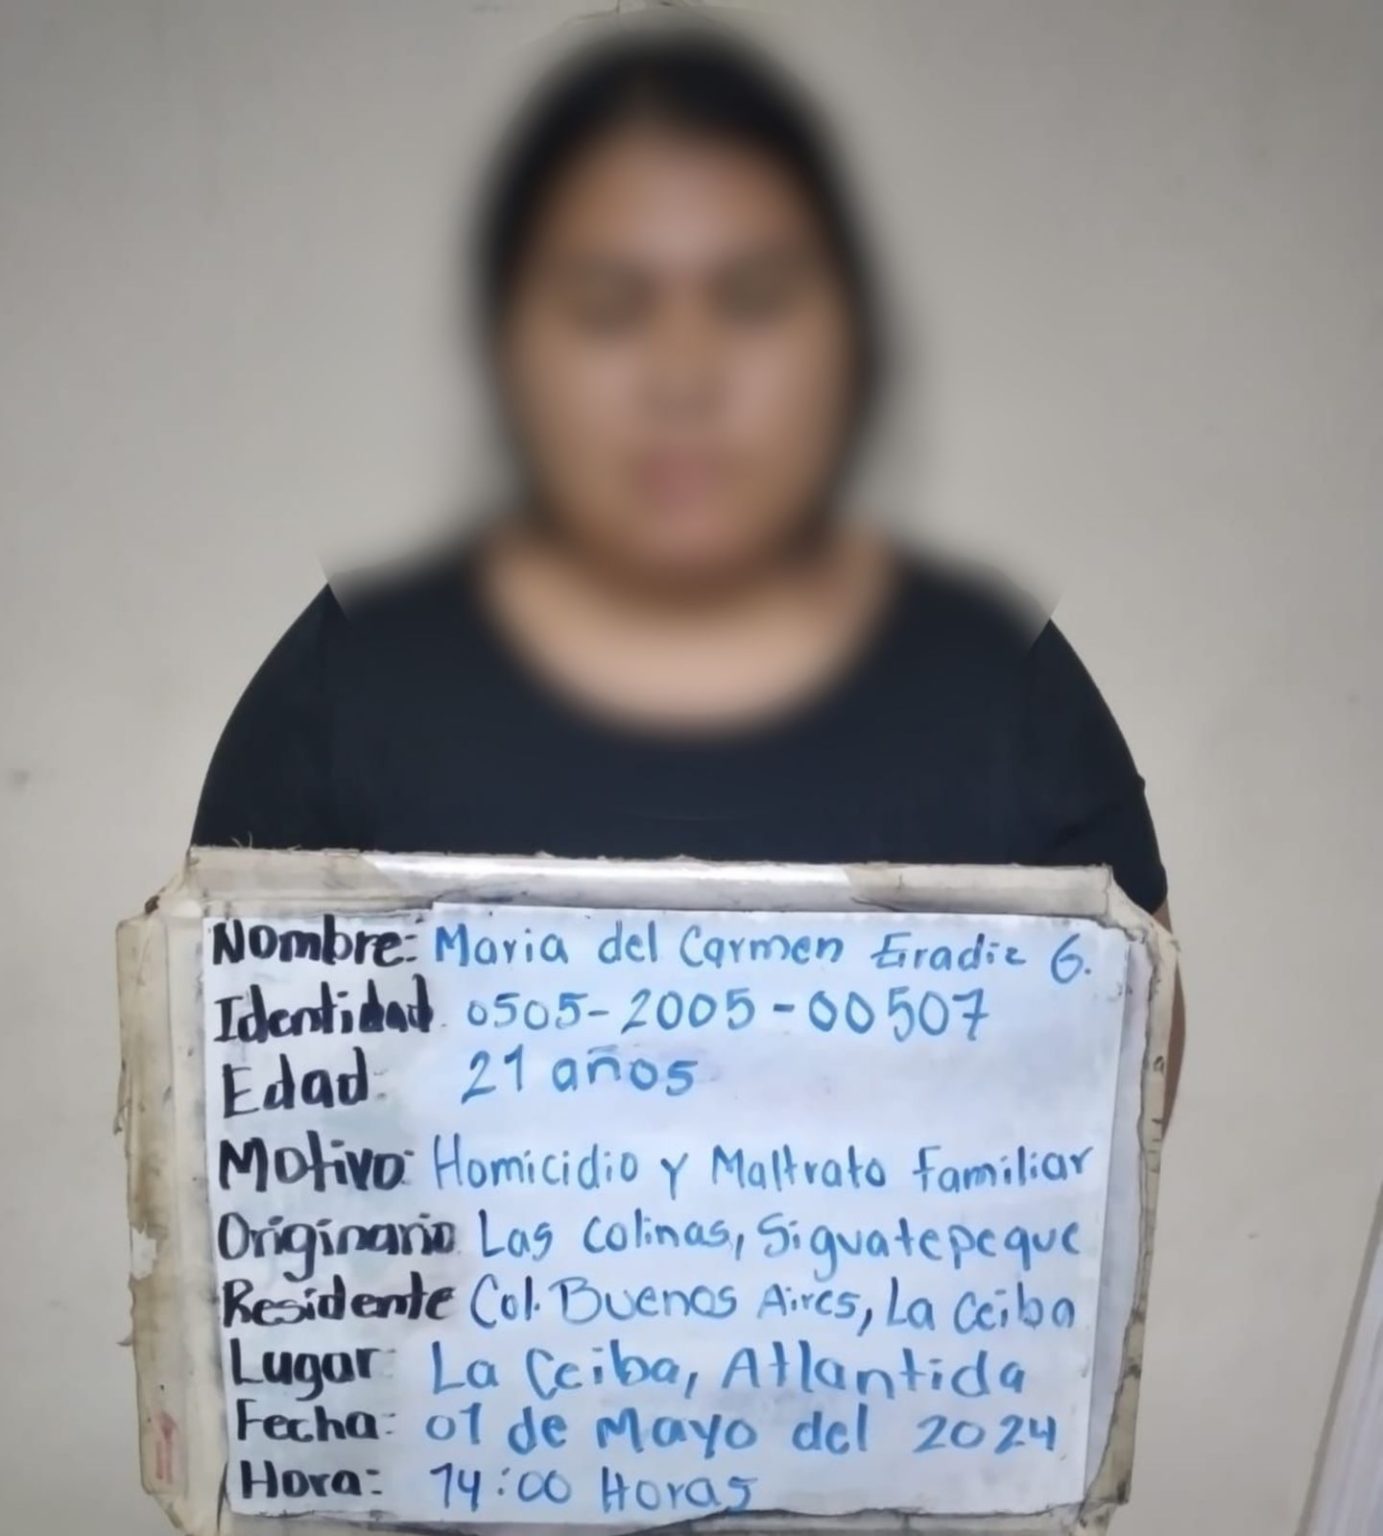 Nombre: Maria del Carmen Eradiz G.
Identidad: 0505-2005-00507
Edad: 21 años
Motivo: Homicidio y Maltrato familiar
Originario Las Colinas, Siguatepeque
Residente Col. Buenos Aires, La Ceiba
Lugar: La Ceiba, Atlantida
Fecha: 01 de Mayo del 2024
Hora: 14:00 Horas